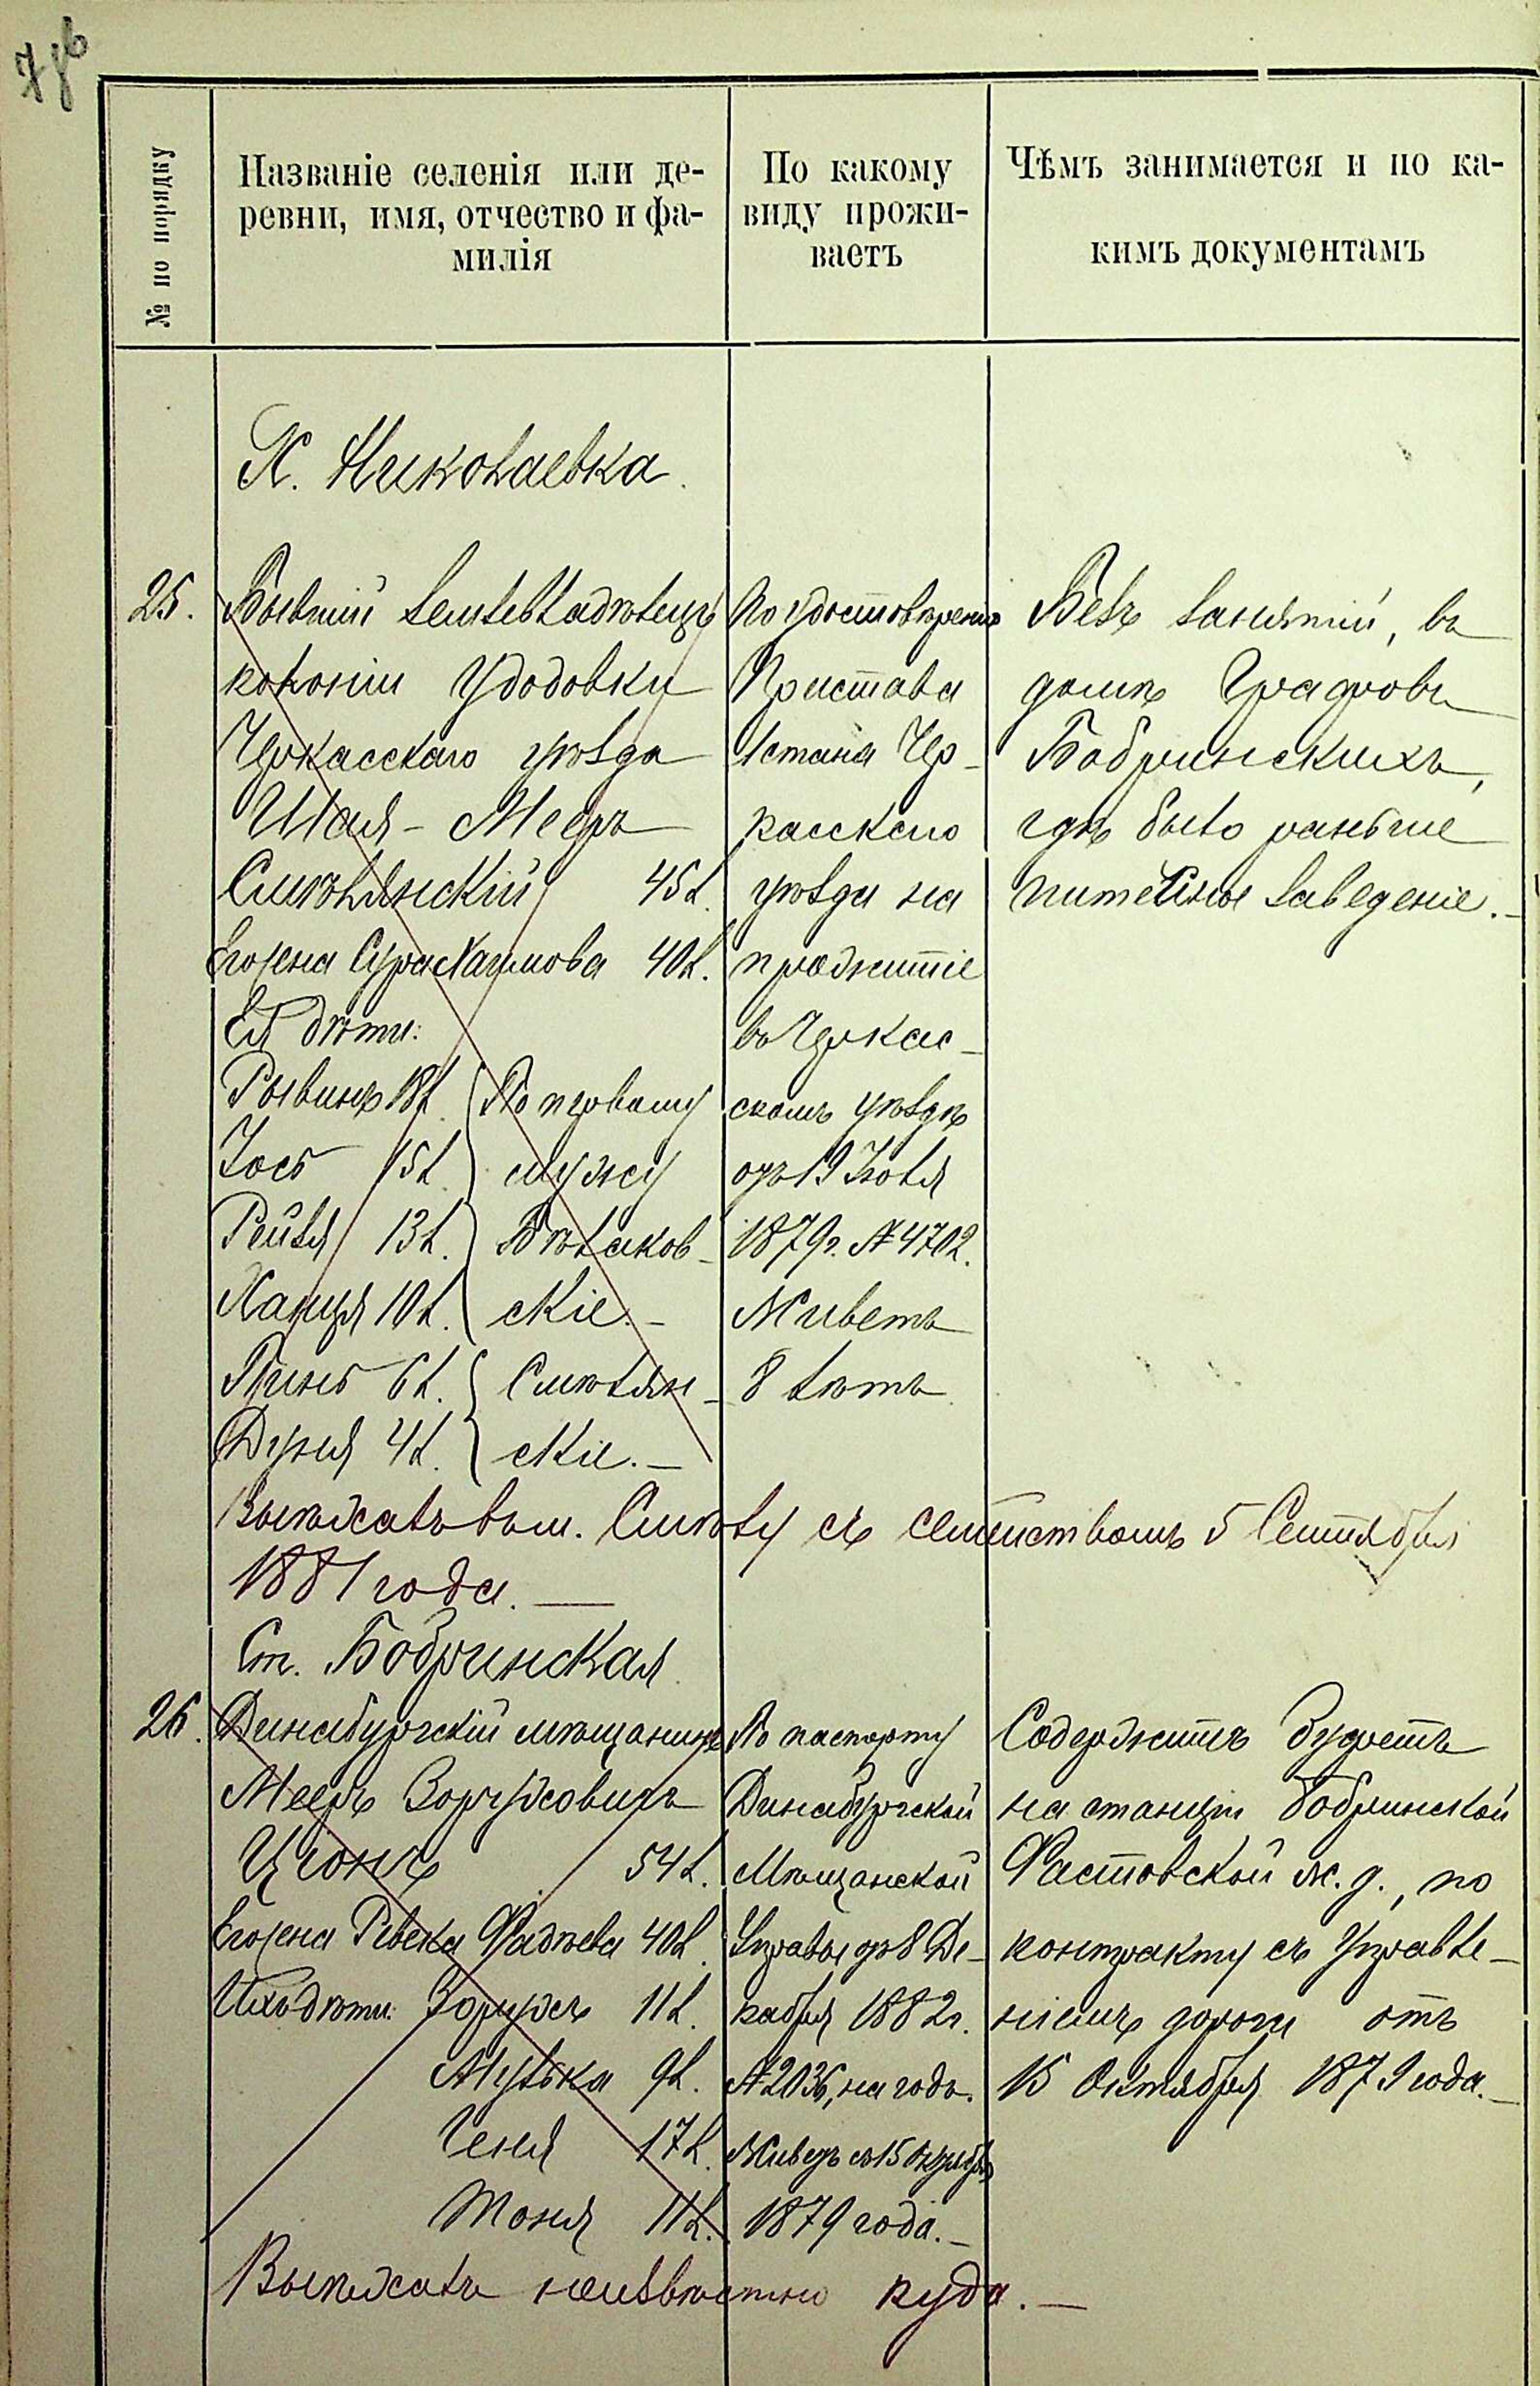 № по порядку
Названіе селенія или де-
ревни, имя, отчество и фа-
милія
По какому
виду прожи-
ваетъ
Чѣмъ занимается и по ка-
кимъ документамъ
Х. Николаевка.
25.
Бывшій землевладѣлецъ
колоніи Удодовки
Черкасскаго уѣзда
Шая-Мееръ
Смѣлянскій 45 л.
Его жена Сура Хаимова 40 л.
Ея дѣти:
Рывинъ 18 л. По первому
Іось 15 л. мужу
Рейзя 13 л. Бѣлаков-
Ханця 10 л. скіе.-
Пинь 6 л. Смѣлян-
Дуня 4 л. скіе.-
По удостовѣренію
Пристава
1 стана Чер-
касскаго
уѣзда на
прожитіе
въ Черкас-
скомъ уѣздѣ
отъ 19 Іюля
1879 г. № 4702.
Живетъ
8 лѣтъ
Безъ занятій, въ
домѣ Графовъ
Бобринскихъ,
гдѣ было раньше
питейное заведеніе.-
Выѣхалъ въ м. Смѣлу съ семействомъ 5 Сентября
1881 года.-
Ст. Бобринская
26.
Динабургскій мѣщанинъ
Мееръ Зоруховичъ
Ціонъ 54 л.
Его жена Ревека Фадѣева 40 л.
Ихъ дѣти: Зорухъ 11 л.
Мулька 9 л.
Геня 17 л.
Тоня 11 л.
По паспорту
Динабургской
Мѣщанской
Управы отъ 8 Де-
кабря 1882 г.
№ 2036, на годъ.
Живетъ съ 15 Октября
1879 года.-
Содержитъ буфетъ
на станціи Бобринской
Фастовской ж. д., по
контракту съ Управле-
ніемъ дороги отъ
15 Октября 1879 года.-
Выѣхалъ неизвѣстно куда.-